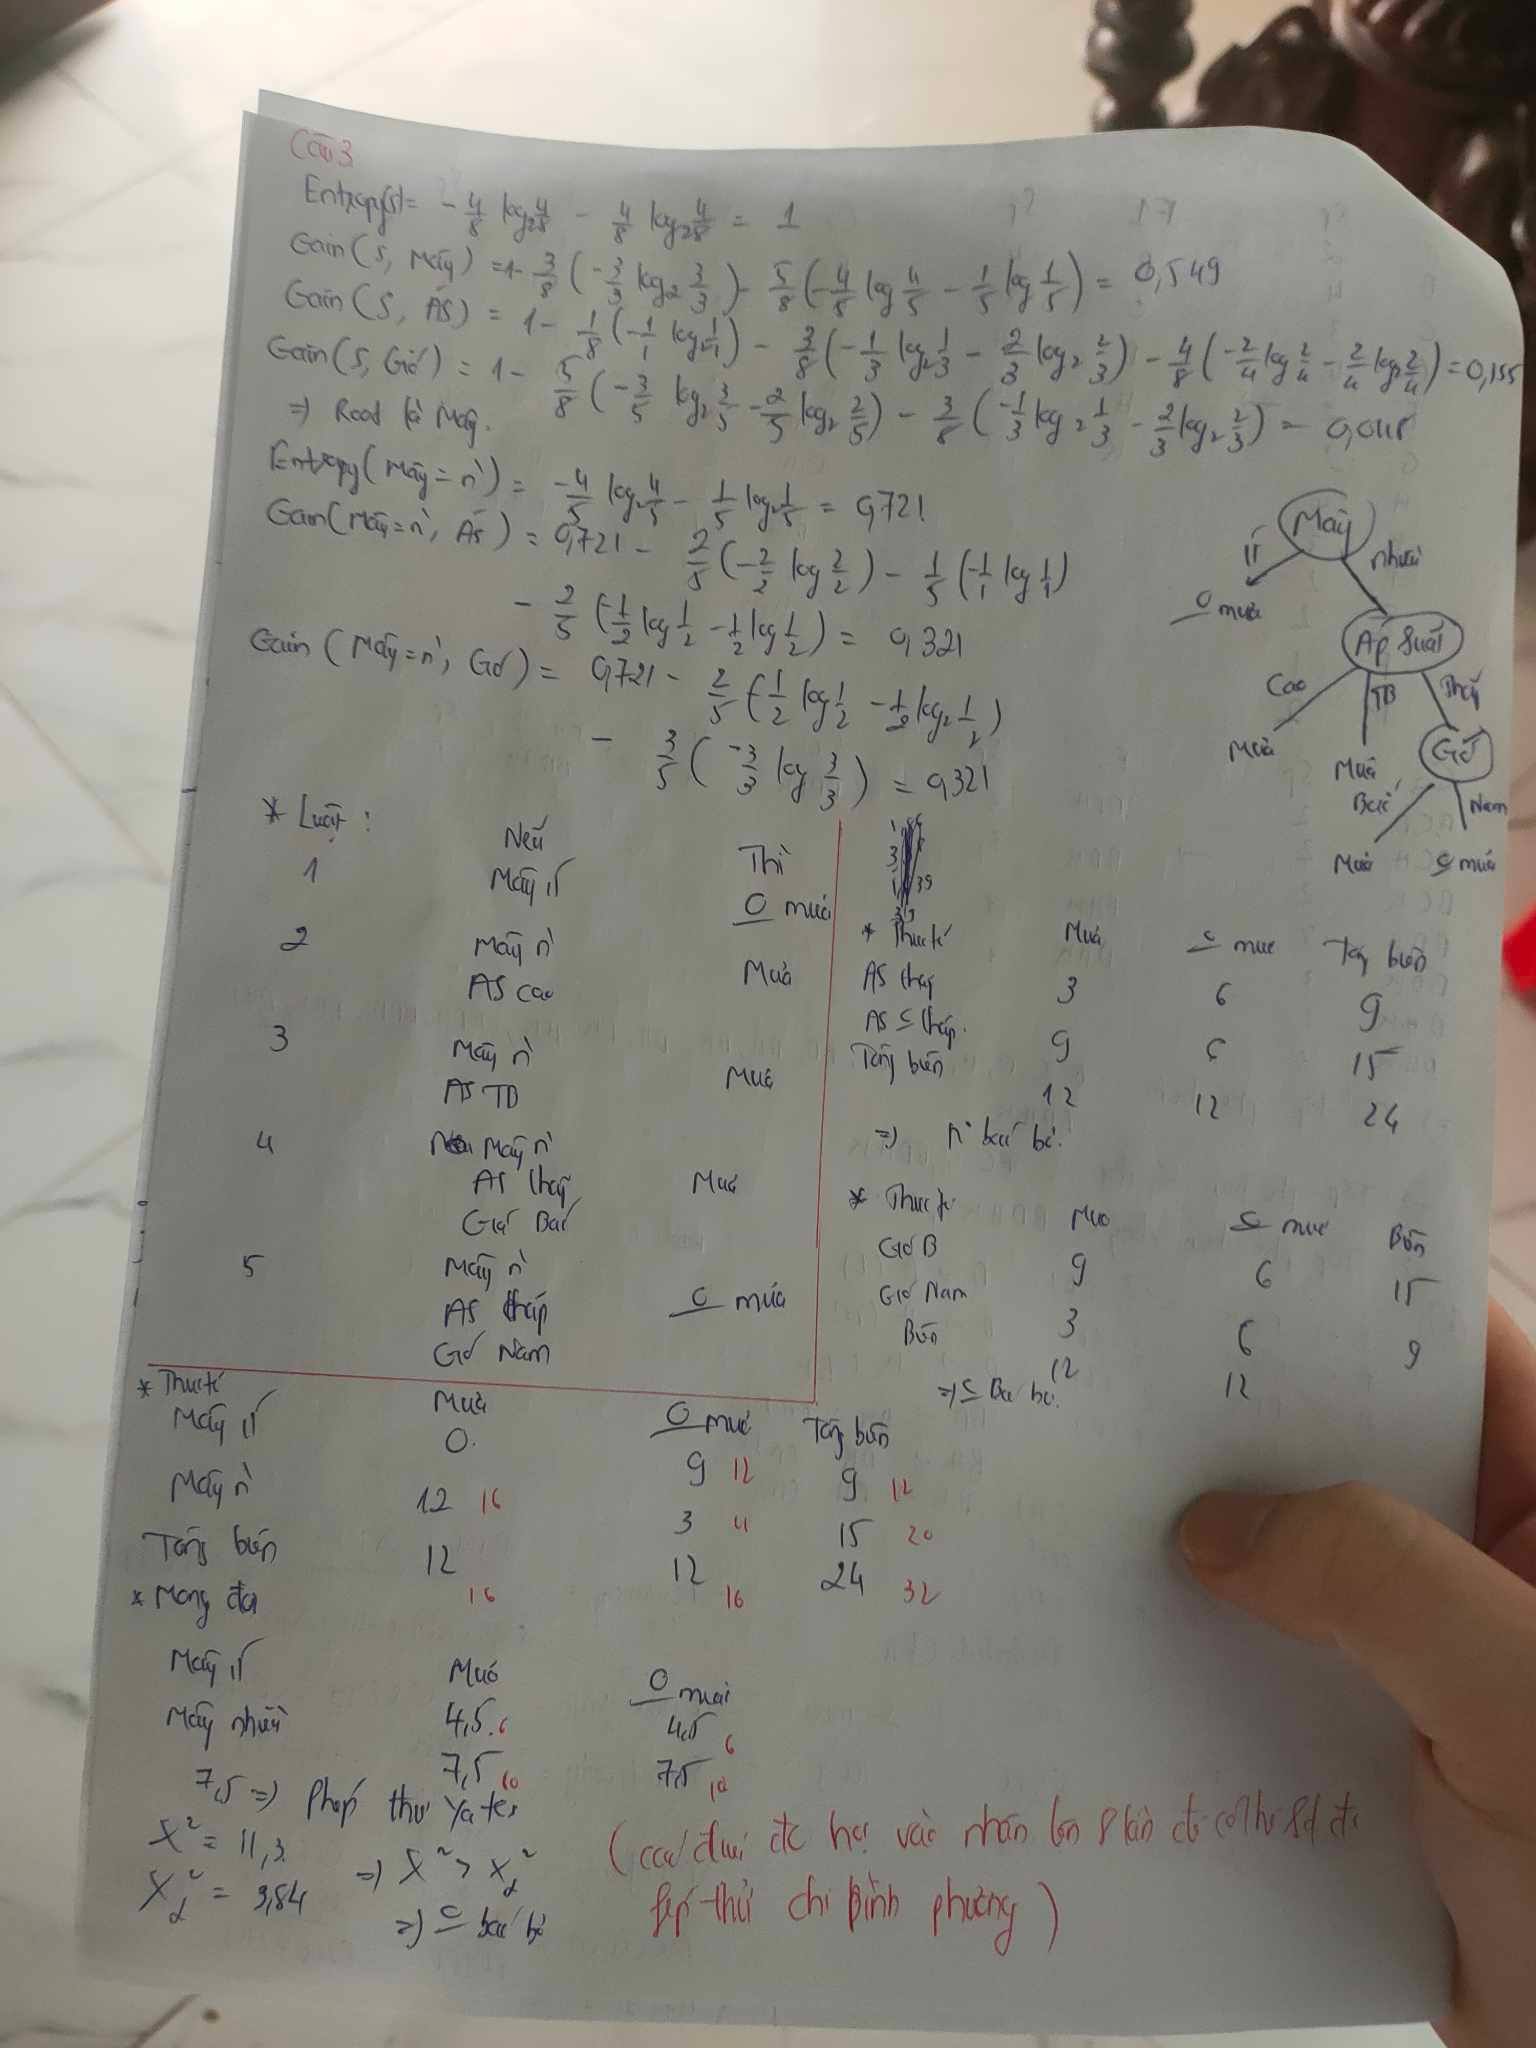 Câu 3
Entropy(S) = - 4/8 log₂ 4/8 - 4/8 log₂ 4/8 = 1
Gain(S, Mây) = 1 - 3/8 (-3/3 log₂ 3/3) - 5/8 (-4/5 log 4/5 - 1/5 log 1/5) = 0,549
Gain(S, ÁS) = 1 - 1/8 (-1/1 log 1/1) - 3/8 (-1/3 log₂ 1/3 - 2/3 log₂ 2/3) - 4/8 (-2/4 log 2/4 - 2/4 log₂ 2/4) = 0,155
Gain(S, Gió) = 1 - 5/8 (-3/5 log₂ 3/5 - 2/5 log₂ 2/5) - 3/8 (-1/3 log₂ 1/3 - 2/3 log₂ 2/3) = 0,048
=) Root là Mây.
Entropy(Mây = n`) = -4/5 log₂ 4/5 - 1/5 log₂ 1/5 = 0,721
Gain(Mây = n`, ÁS) = 0,721 - 2/5 (-2/2 log 2/2) - 1/5 (-1/1 log 1/1)
- 2/5 (-1/2 log 1/2 - 1/2 log 1/2) = 0,321
Gain (Mây = n`, Gió) = 0,721 - 2/5 (-1/2 log 1/2 - 1/2 log₂ 1/2)
- 3/5 (-3/3 log 3/3) = 0,321
Mây
ít nhiều
O mưa
Áp suất
Cao TB Thấp
Mưa Mưa Gió
Bắc Nam
Mưa C mưa
* Luật : Nếu Thì
1 Mây ít O mưa
2 Mây n` Mưa
AS cao
3 Mây n` Mưa
AS TB
4 Mây n` Mưa
AS thấp
Gió Bắc
5 Mây n` C mưa
AS thấp
Gió Nam
* Thực tế Mưa C mưa Tổng biên
AS thấp 3 6 9
AS C thấp. 9 6 15
Tổng biên 12 12 24
=) n` bác bỏ.
* Thực tế Mưa C mưa Biên
Gió B 9 6 15
Gió Nam 3 6 9
Biên 12 12
=) C Bác bỏ.
* Thực tế Mưa O mưa Tổng biên
Mây ít 0. 9 12 9 12
Mây n` 12 16 3 4 15 20
Tổng biên 12 16 12 16 24 32
* Mong đợi
Mưa O mưa
Mây ít 4,5. 6 4,5 6
Mây nhiều 7,5 10 7,5 10
7,5 =) Phép thử Yates
X² = 11,3
X²α = 3,84 =) X² > X²α
=) C bác bỏ
phép thử chi bình phương )